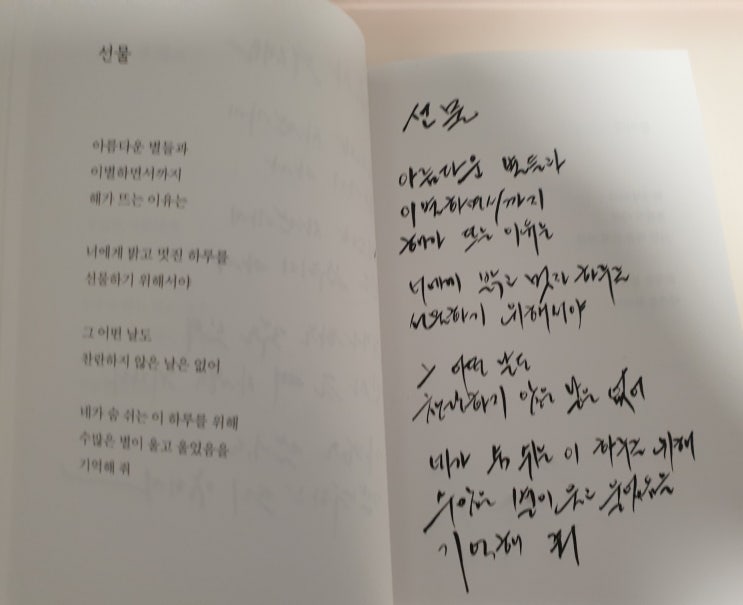 선물
아름다운 별들과
이별하면서까지
해가 뜨는 이유는
너에게 밝고 멋진 하루를
선물하기 위해서야
그 어떤 날도
찬란하지 않은 날은 없어
네가 숨 쉬는 이 하루를 위해
수많은 별이 울고 울었음을
기억해 줘
선물
아름다운 별들과
이별하면서까지
해가 뜨는 이유는
너에게 밝고 멋진 하루를
선물하기 위해서야
그 어떤 날도
찬란하지 않은 날은 없어
네가 숨 쉬는 이 하루를 위해
수많은 별이 울고 울었음을
기억해 줘